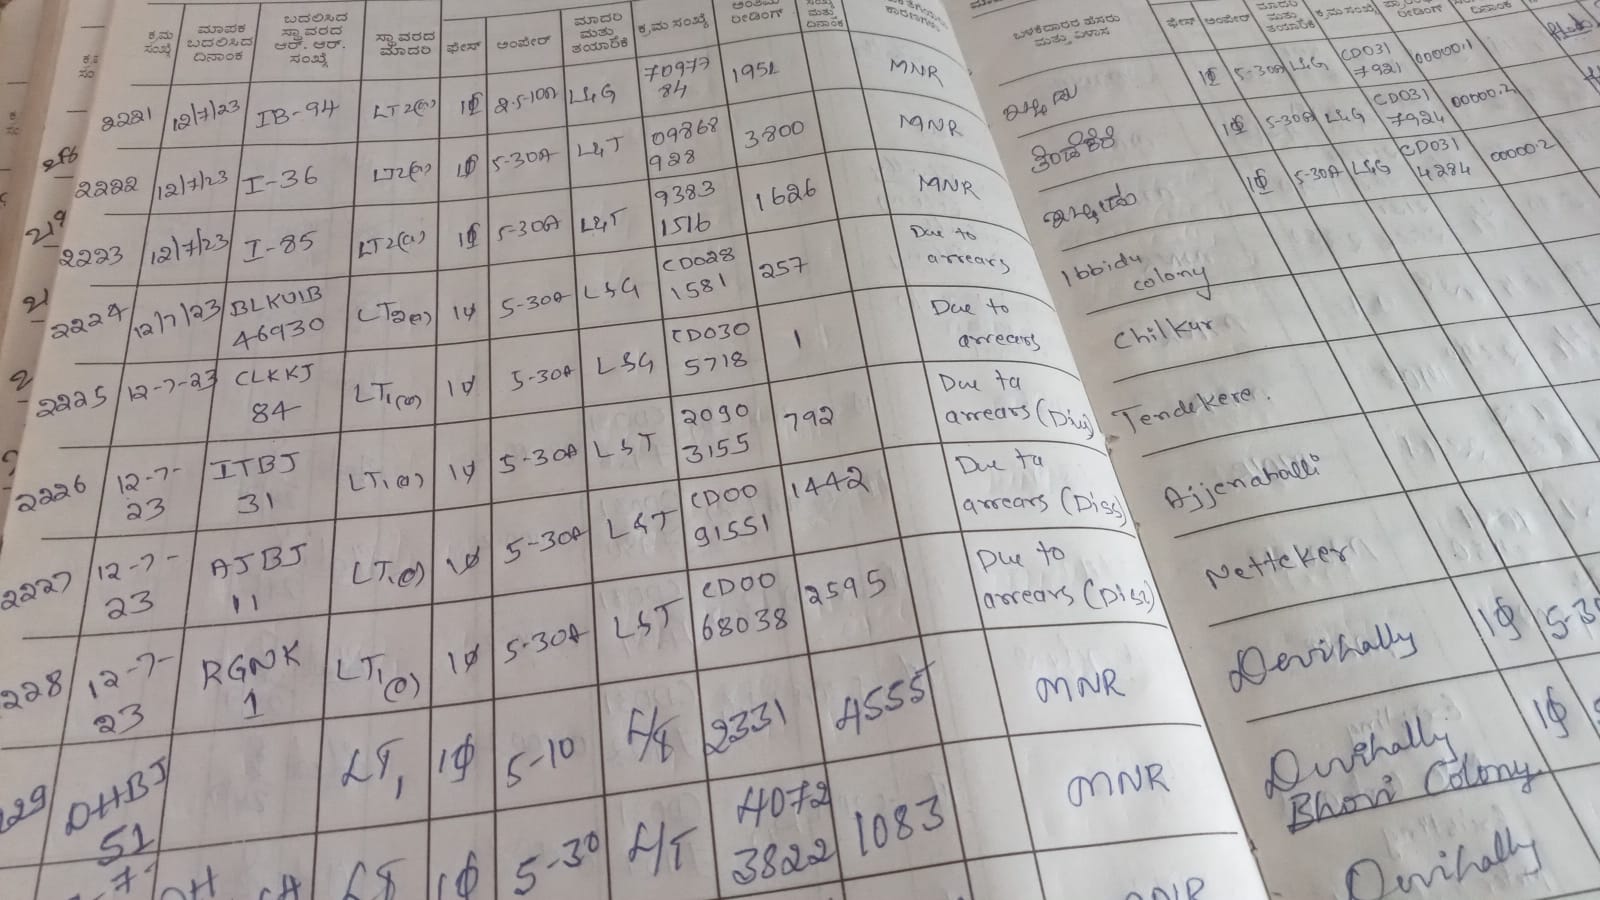 ಕ್ರಮ ಸಂಖ್ಯೆ ಮಾಪಕ ಬದಲಿಸಿದ ದಿನಾಂಕ ಬದಲಿಸಿದ ಸ್ಥಾವರದ ಆರ್. ಆರ್. ಸಂಖ್ಯೆ ಸ್ಥಾವರದ ಮಾದರಿ ಫೇಸ್ ಅಂಪೇರ್ ಮಾದರಿ ಮತ್ತು ತಯಾರಿಕೆ ಕ್ರಮ ಸಂಖ್ಯೆ ಅಂತಿಮ ರೀಡಿಂಗ್ ಬಳಕೆದಾರರ ಹೆಸರು ಮತ್ತು ವಿಳಾಸ ಫೇಸ್ ಅಂಪೇರ್ ಮಾದರಿ ಮತ್ತು ತಯಾರಿಕೆ ಕ್ರಮ ಸಂಖ್ಯೆ ರೀಡಿಂಗ್ ದಿನಾಂಕ
2221 12/7/23 IB-94 LT2(a) 1φ 2.5-10A L&G 70977 84 1951 MNR 1φ 5-30A L&G CD031 7921 00000.1
2222 12/7/23 I-36 LT2(a) 1φ 5-30A L&T 09868 928 3800 MNR 1φ 5-30A L&G CD031 7924 00000.2
2223 12/7/23 I-85 LT2(a) 1φ 5-30A L&T 9383 1516 1626 MNR 1φ 5-30A L&G CD031 4284 00000.2
2224 12/7/23 BLKUIB 46930 LT2(a) 1φ 5-30A L&G CD028 1581 257 Due to arrears Ibbidu colony
2225 12-7-23 CLKKJ 84 LT1(a) 1φ 5-30A L&G CD030 5718 1 Due to arrears Chilkur
2226 12-7-23 ITBJ 31 LT1(a) 1φ 5-30A L&T 2090 3155 792 Due to arrears (Dis) Tendekere.
2227 12-7-23 AJBJ 11 LT1(a) 1φ 5-30A L&T CD00 91551 1442 Due to arrears (Diss) Ajjenahalli
228 12-7-23 RGNK 1 LT1(a) 1φ 5-30A L&T CD00 68038 2595 Due to arrears (Diss) Netteker
229 DHBJ 51 LT1 1φ 5-10 L/T 2331 4555 MNR Devihally 1φ 5-3
LT 1φ 5-30 L/T 4072 3822 1083 MNR Devihally Bhovi Colony 1φ
Devihally